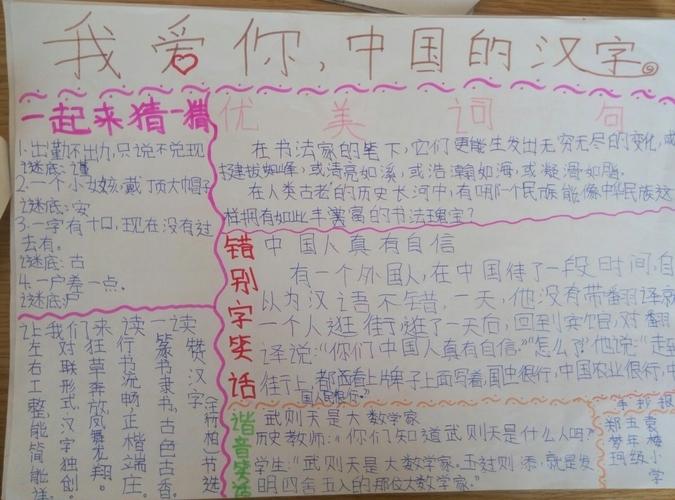 我爱你,中国的汉字。
一起来猜一猜
1.出勤不出力,只说不兑现
谜底:谨
2.一个小女孩,戴顶大帽子
谜底:安
3.一字有十口,现在没有过
去有。
谜底:古
4.一户差一点.
谜底:尸
优美词句
在书法家的笔下,它们更能生发出无穷无尽的变化,或
挺拔如峰,或清亮如溪,或浩瀚如海,或凝滑如脂.
在人类古老的历史长河中,有哪个民族能像中华民族这
样拥有如此丰富的书法瑰宝?
错别字笑话
中国人真有自信
有一个外国人,在中国待了一段时间,自
以为汉语不错,一天,他没有带翻译就
一个人逛街,逛了一天后,回到宾馆,对翻
译说:"你们中国人真有自信。"怎么了?他说:"走到
街上,都看上牌子上面写着,国中很行,中国农业很行,中
国人民很行。"
谐音笑话
武则天是大数学家
历史教师:"你们知道武则天是什么人吗?
学生:"武则天是大数学家,
明四舍五入的那位大数学家。
读赞汉字
节选
一篆书隶书,古色古香。
读行书流畅,正楷端庄。
来狂草奔放,凤舞龙翔。
我们对联形式,汉字独创,
上左右工整,能简能详。
手抄报
小学